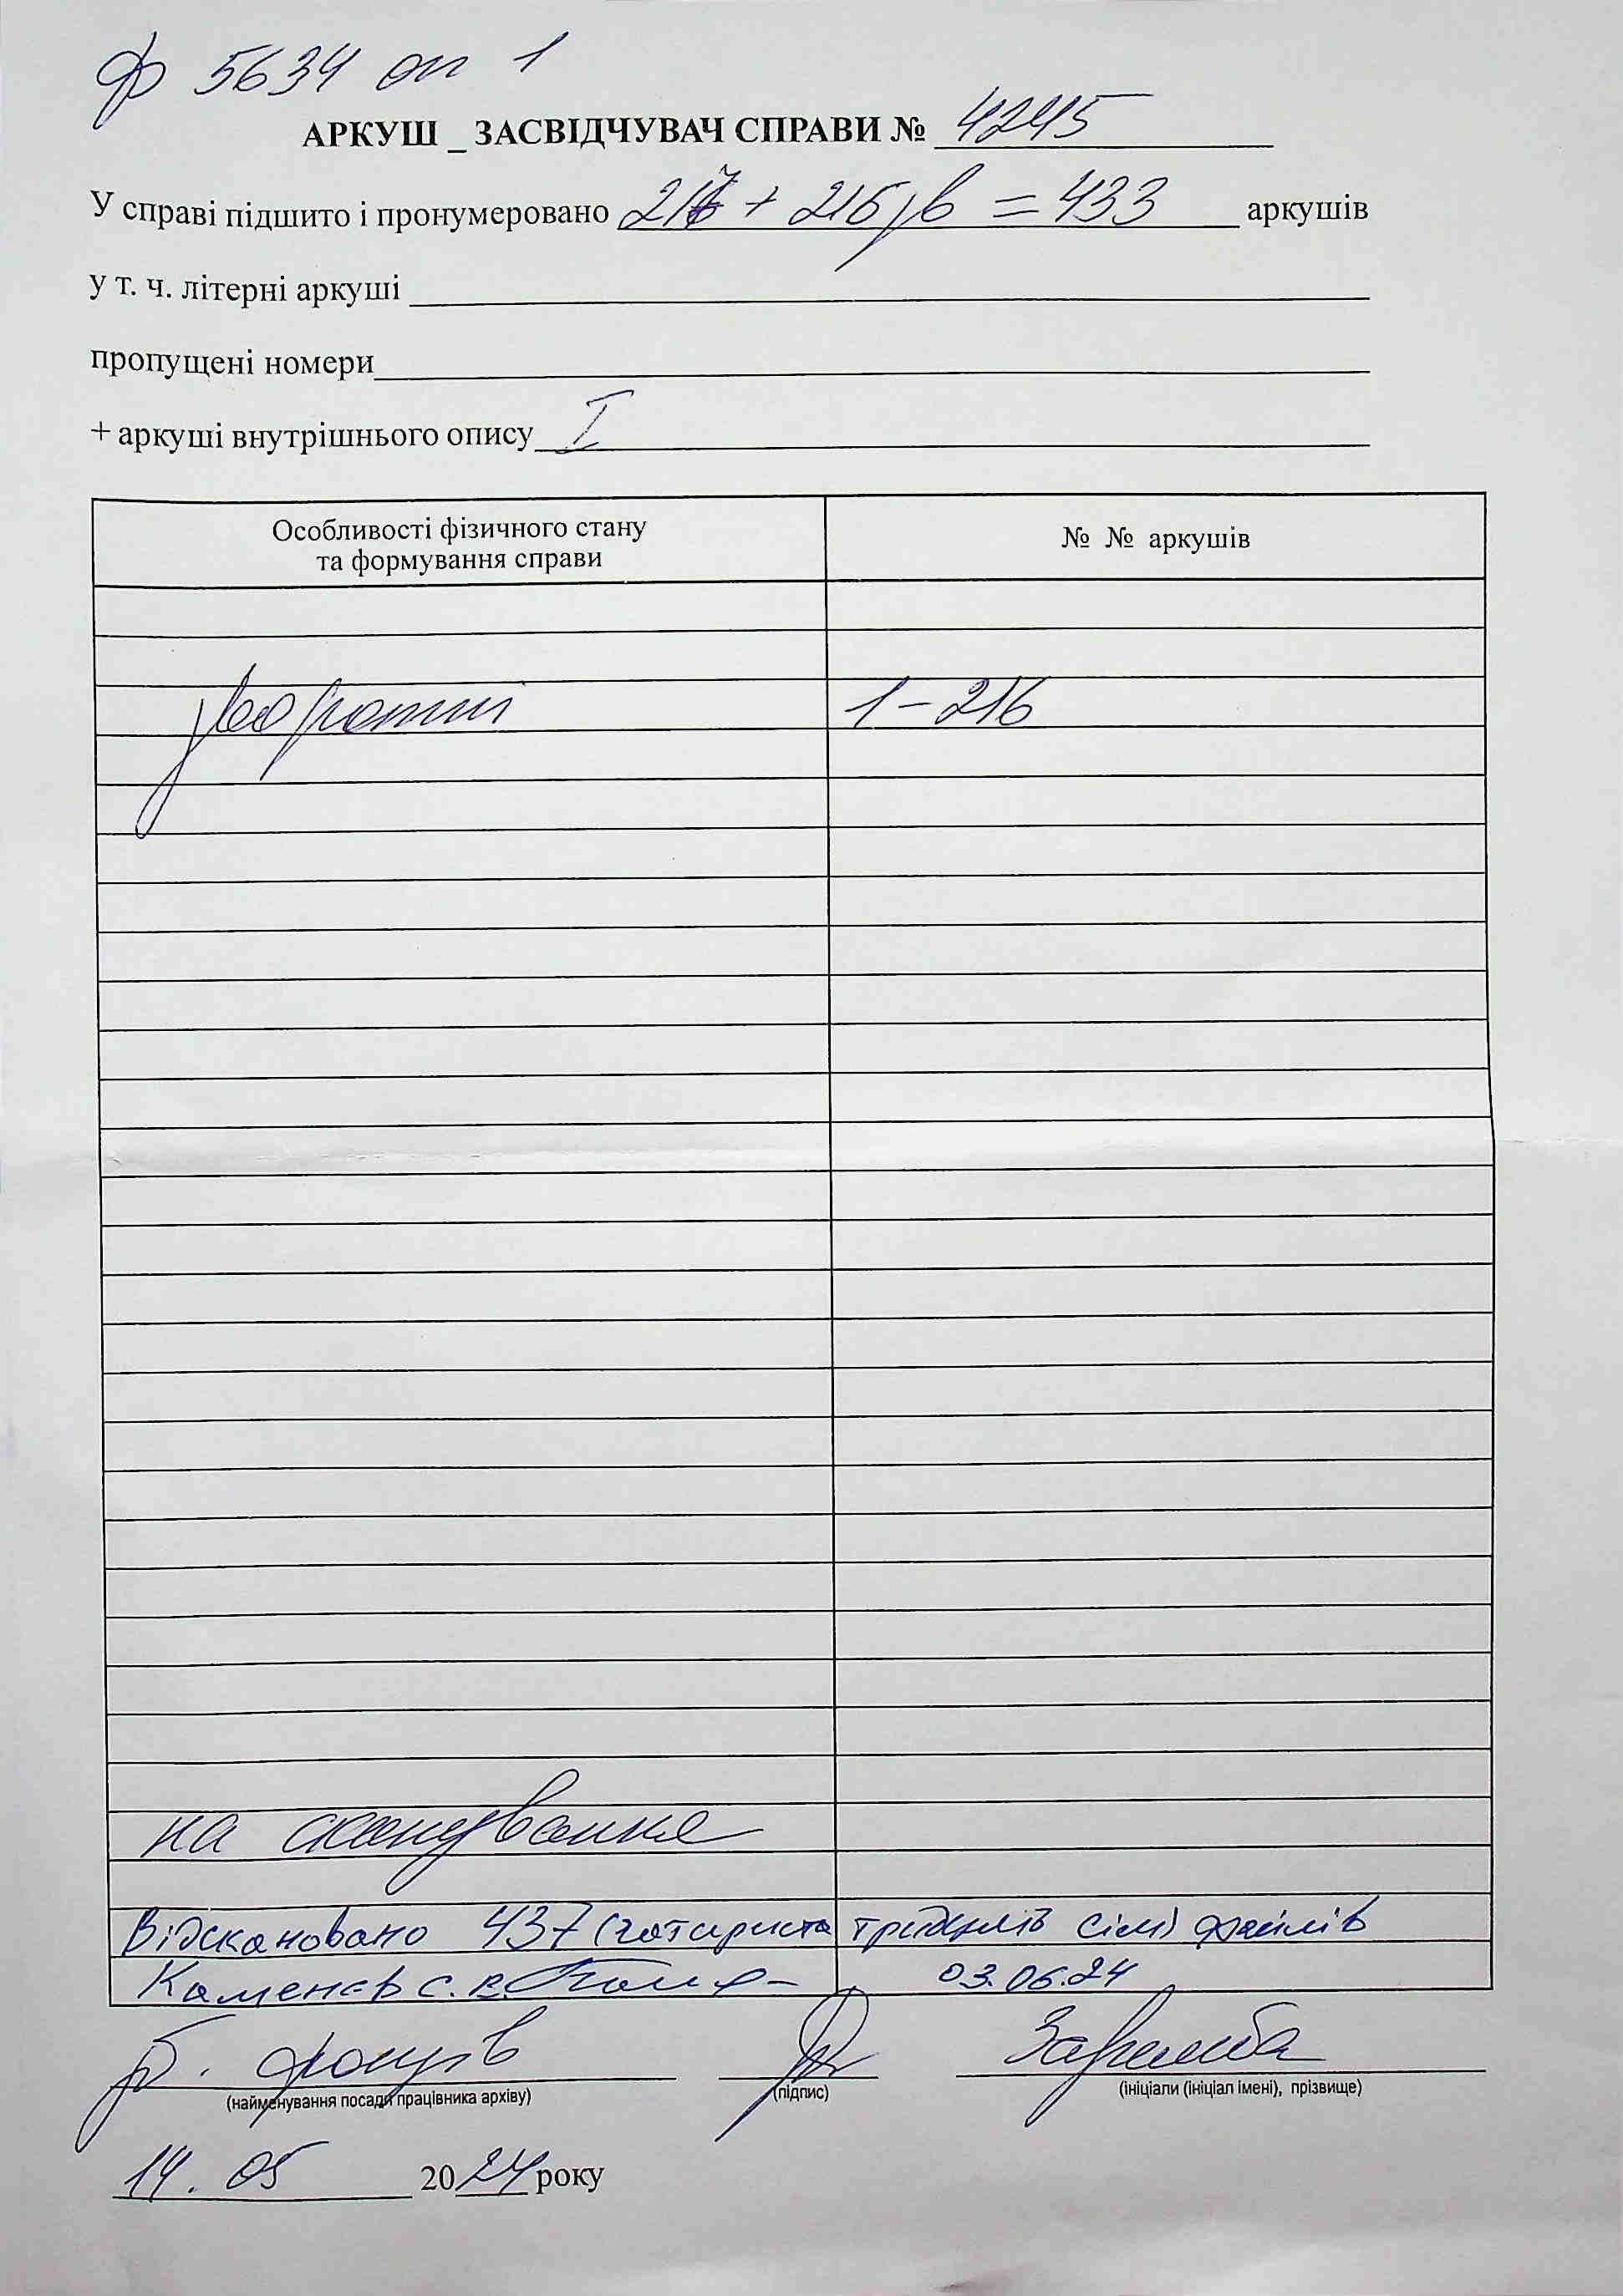 ф 5634 оп 1
АРКУШ _ ЗАСВІДЧУВАЧ СПРАВИ № 4245
У справі підшито і пронумеровано 217 + 216 зв = 433 аркушів
у т. ч. літерні аркуші
пропущені номери
+ аркуші внутрішнього опису I
Особливості фізичного стану та формування справи
№ № аркушів
звороти 1-216
на сканування
Відскановано 437 (чотириста тридцять сім) файлів
Каменєв С.В. 03.06.24
Заремба
(найменування посади працівника архіву) (підпис) (ініціали (ініціал імені), прізвище)
14. 05 2024 року